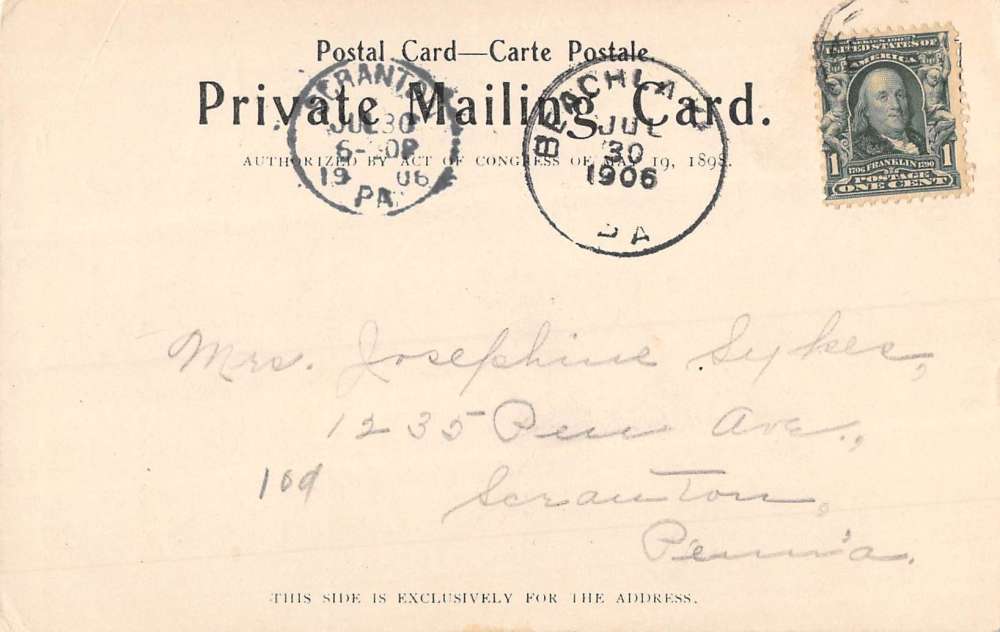 Postal Card—Carte Postale.
Private Mailing Card.
AUTHORIZED BY ACT OF CONGRESS OF MAY 19, 1898.
SCRANTON
JUL 30
6-30P
19 06
PA.
BEACHLAKE
JUL
30
1906
PA
SERIES 1902
UNITED STATES OF
AMERICA
1706 FRANKLIN 1790
1 POSTAGE 1
ONE CENT
Mrs. Josephine Sykes,
1235 Penn Ave.,
109
Scranton,
Penn'a.
THIS SIDE IS EXCLUSIVELY FOR THE ADDRESS.